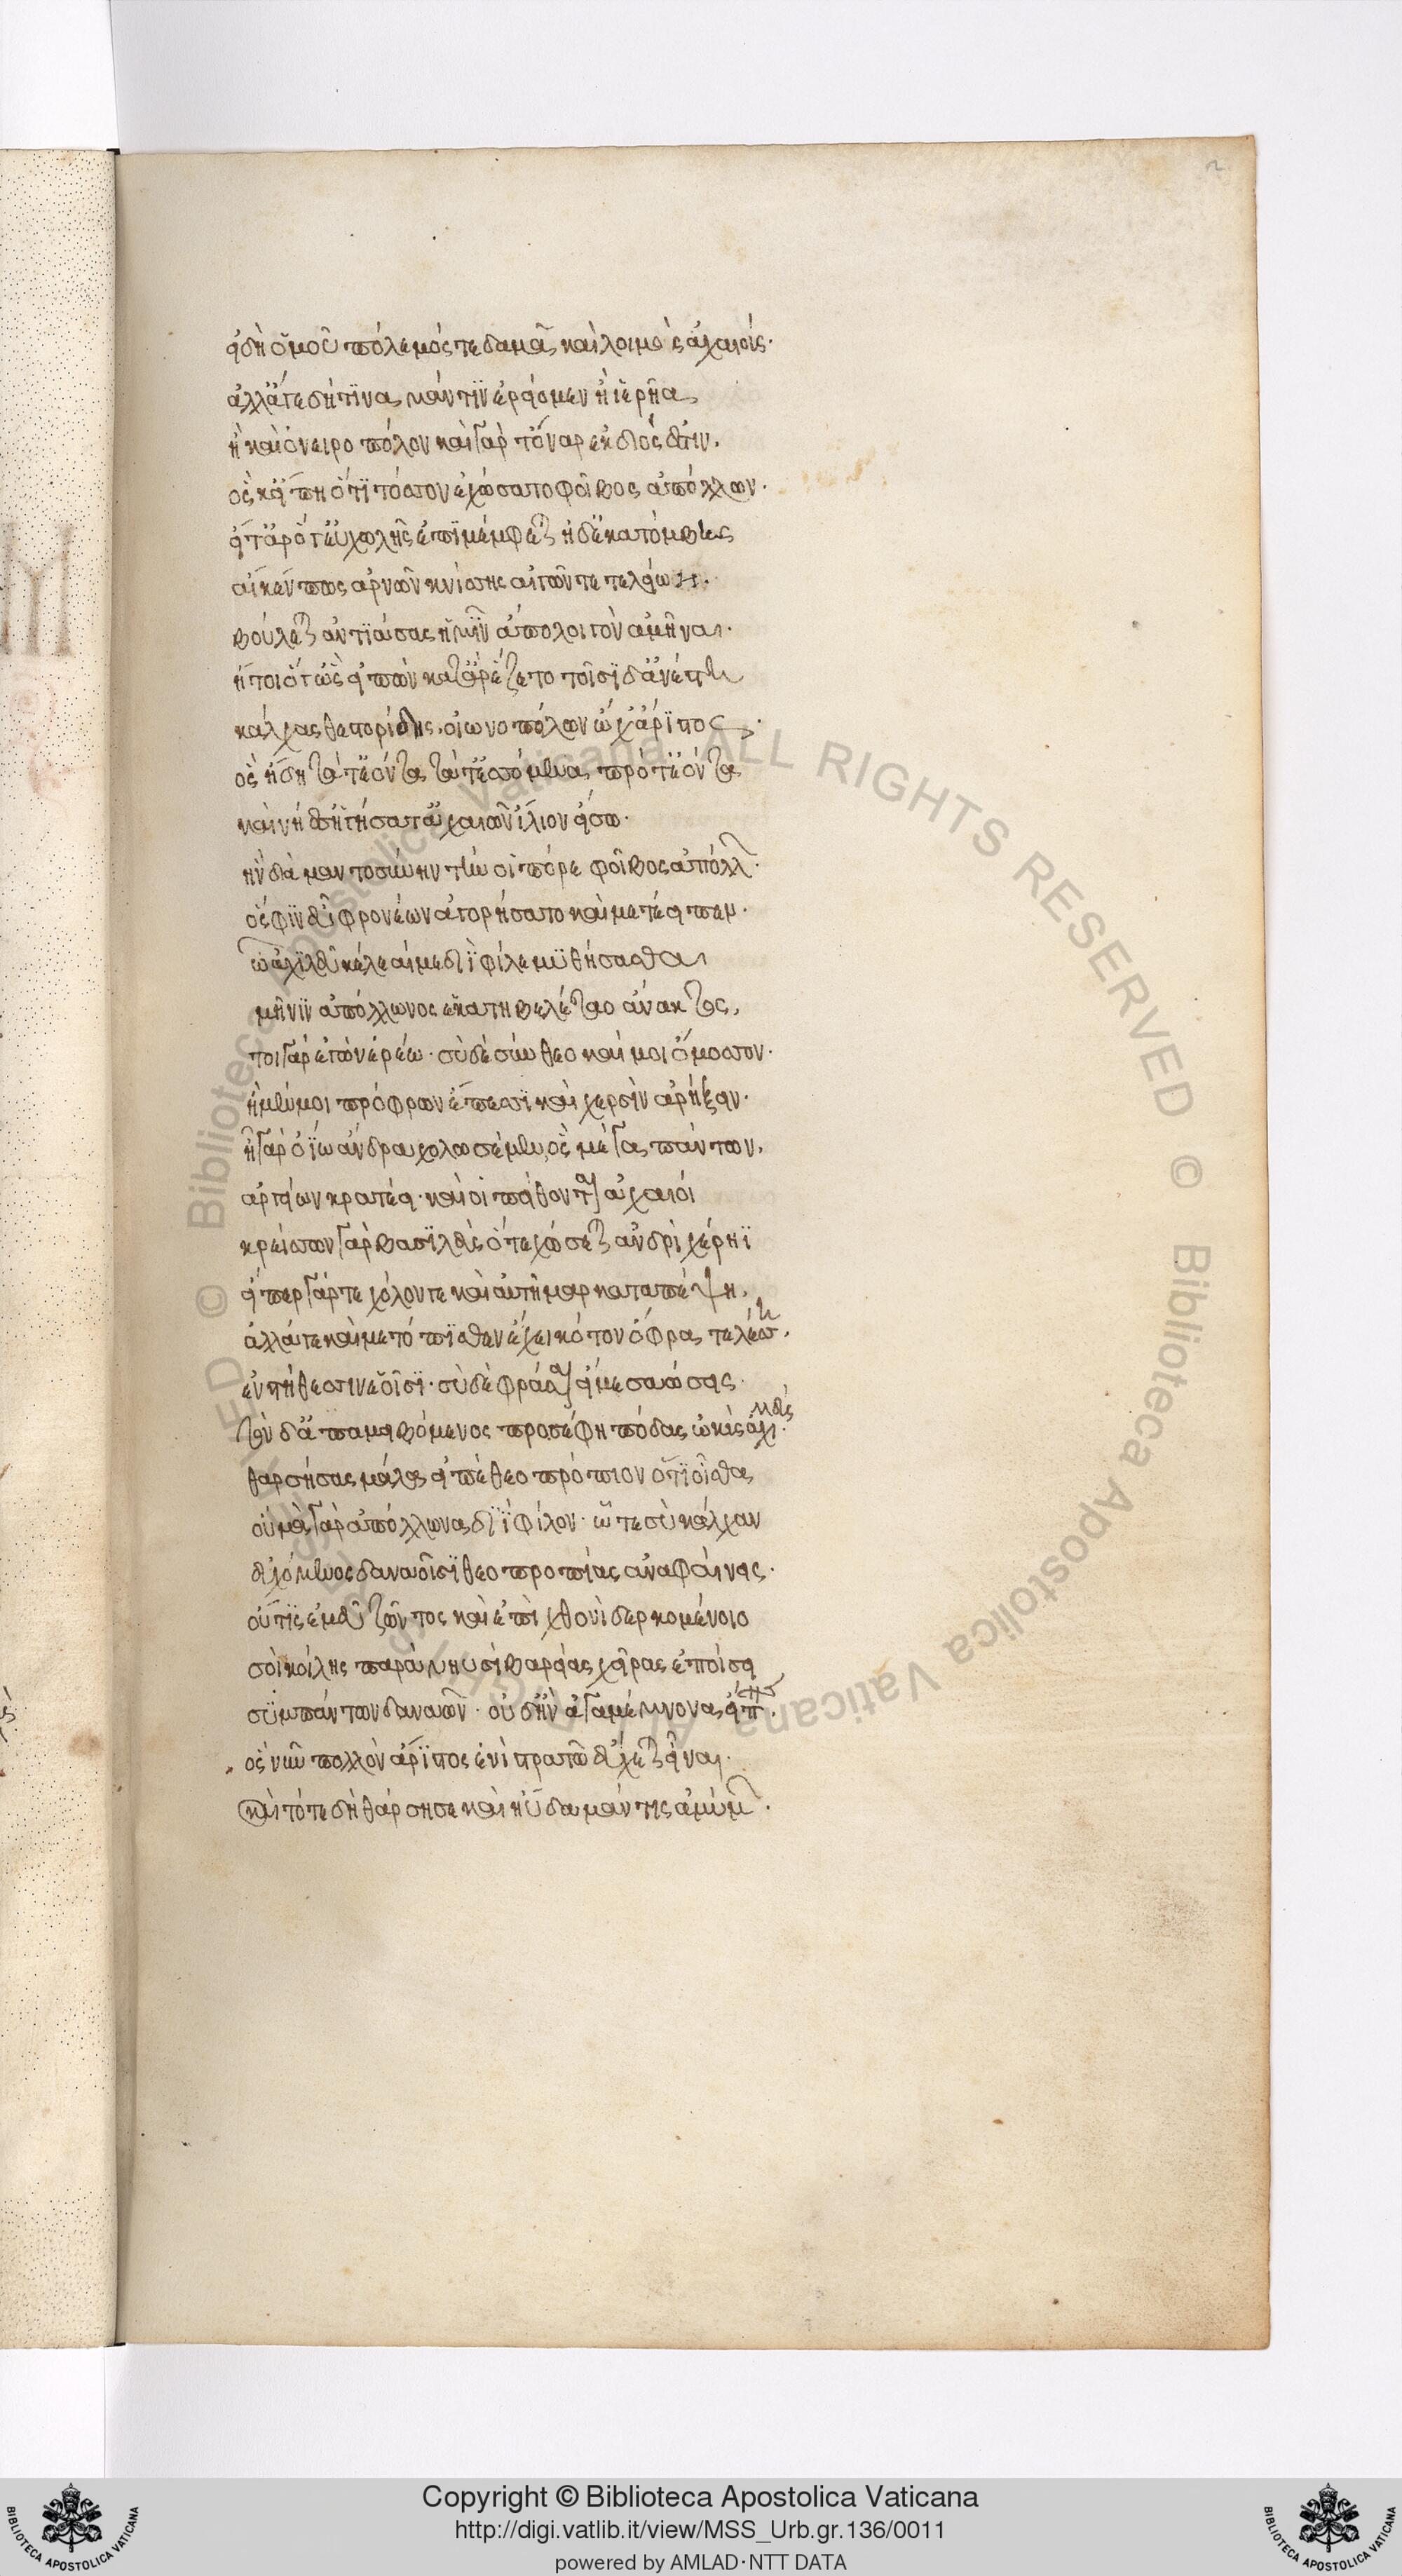 2
εἰ δὴ ὁμοῦ πόλεμός τε δαμᾷ καὶ λοιμὸς ἀχαιούς·
ἀλλ' ἄγε δή τινα μάντιν ἐρείομεν ἢ ἱερῆα,
ἢ καὶ ὀνειροπόλον καὶ γάρ τ' ὄναρ ἐκ διός ἐστιν.
ὅς κ' εἴπῃ ὅτι τόσσον ἐχώσατο φοῖβος ἀπόλλων·
εἴτ' ἄρ ὅτ' εὐχωλῆς ἐπιμέμφεται ἠδ' ἑκατόμβης
αἴ κέν πως ἀρνῶν κνίσης αἰγῶν τε τελείων·
βούλεται ἀντιάσας ἡμῖν ἀπὸ λοιγὸν ἀμῦναι·
ἤτοι ὅγ' ὣς εἰπὼν κατ' ἄρ' ἕζετο τοῖσι δ' ἀνέστη
κάλχας θεστορίδης, οἰωνοπόλων ὄχ' ἄριστος·
ὃς ᾔδη τά τ' ἐόντα τά τ' ἐσσόμενα πρό τ' ἐόντα
καὶ νήεσσ' ἡγήσατ' ἀχαιῶν ἴλιον εἴσω·
ἣν διὰ μαντοσύνην τήν οἱ πόρε φοῖβος ἀπόλλ·
ὅ σφιν εὐφρονέων ἀγορήσατο καὶ μετέειπεν·
ὦ ἀχιλεῦ κέλεαί με διῒ φίλε μυθήσασθαι
μῆνιν ἀπόλλωνος ἑκατηβελέταο ἄνακτος,
τοιγὰρ ἐγὼν ἐρέω· σὺ δὲ σύνθεο καί μοι ὄμοσσον·
ἦ μέν μοι πρόφρων ἔπεσι καὶ χερσὶν ἀρήξειν·
ἦ γὰρ ὀΐω ἄνδρα χολωσέμεν, ὃς μέγα πάντων,
ἀργείων κρατέει· καί οἱ πείθονται ἀχαιοί
κρείσσων γὰρ βασιλεὺς ὅτε χώσεται ἀνδρὶ χέρηϊ
εἴπερ γάρ τε χόλον τε καὶ αὐτῆμαρ καταπέψῃ,
ἀλλά τε καὶ μετόπισθεν ἔχει κότον ὄφρα τελέσσῃ,
ἐν στήθεσσιν ἑοῖσι· σὺ δὲ φράσαι εἴ με σαώσεις·
τὸν δ' ἀπαμειβόμενος προσέφη πόδας ὠκὺς ἀχιλλεύς·
θαρσήσας μάλα εἰπὲ θεοπρόπιον ὅτι οἶσθα
οὐ μὰ γὰρ ἀπόλλωνα διῒ φίλον· ᾧτε σὺ κάλχαν
εὐχόμενος δαναοῖσι θεοπροπίας ἀναφαίνεις·
οὔτις ἐμεῦ ζῶντος καὶ ἐπὶ χθονὶ δερκομένοιο
σοὶ κοίλῃς παρὰ νηυσὶ βαρείας χεῖρας ἐποίσει
συμπάντων δαναῶν· οὐδ' ἢν ἀγαμέμνονα εἴπῃς·
ὃς νῦν πολλὸν ἄριστος ἐνὶ στρατῷ εὔχεται εἶναι·
καὶ τότε δὴ θάρσησε καὶ ηὔδα μάντις ἀμύμ·
Copyright © Biblioteca Apostolica Vaticana
http://digi.vatlib.it/view/MSS_Urb.gr.136/0011
powered by AMLAD·NTT DATA